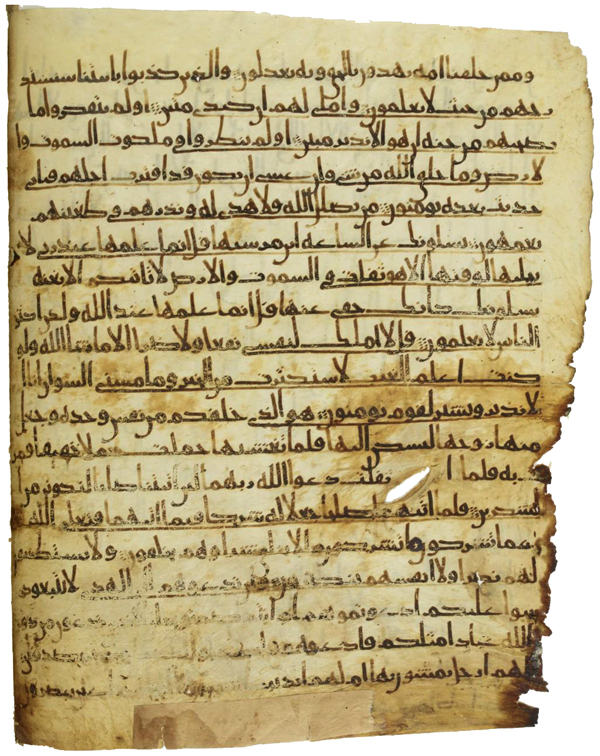 وممن خلقنا امه يهدون بالحق وبه يعدلون والذين كذبوا بايتنا سنستد
رجهم من حيث لا يعلمون واملي لهم ان كيدي متين اولم يتفكروا ما
بصحبهم من جنه ان هو الا نذير مبين اولم ينظروا في ملكوت السموت وا
لارض وما خلق الله من شي وان عسى ان يكون قد اقترب اجلهم فباي
حديث بعده يومنون من يضلل الله فلا هدي له ويذرهم في طغينهم
يعمهون يسلونك عن الساعه ايان مرسيها قل انما علمها عند ربي لا
يجليها لوقتها الا هو ثقلت في السموت والارض لا تاتيكم الا بغته
يسلونك كانك حفي عنها قل انما علمها عند الله ولكن اكثر
الناس لا يعلمون قل لا املك لنفسي نفعا ولا ضرا الا ما شا الله ولو
كنت اعلم الغيب لاستكثرت من الخير وما مسني السو ان انا ا
لا نذير وبشير لقوم يومنون هو الذي خلقكم من نفس وحده وجعل
منها زوجها ليسكن اليها فلما تغشيها حملت حملا خفيفا فمر
ت به فلما ا ثقلت دعوا الله ربهما لين اتيتنا صلحا لنكونن من ا
لشكرين فلما اتيهما صلحا جعلا له شركا فيما اتيهما فتعلى الله
عما يشركون ايشركون ما لا يخلق شيا وهم يخلقون ولا يستطيعون
لهم نصرا ولا انفسهم ينصرون وان تدعوهم الى الهدى لا يتبعوكم
سوا عليكم ادعوتموهم ام انتم
الله عباد امثلكم فادعوهم
الهم ارجل يمشون بها ام لهم ايد يبصرون